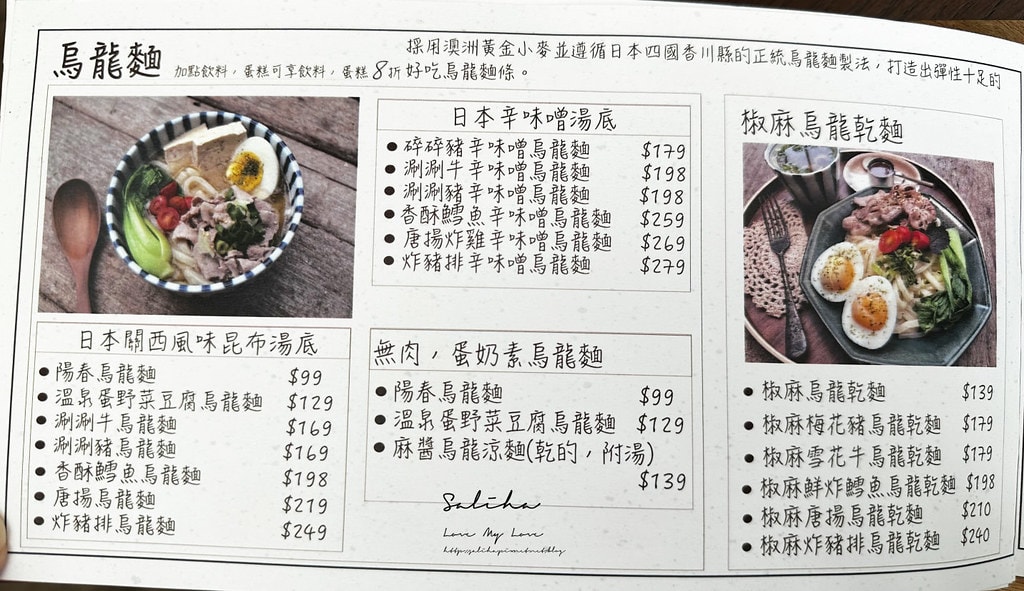 烏龍麵
採用澳洲黃金小麥並遵循日本四國香川縣的正統烏龍麵製法，打造出彈性十足的
加點飲料，蛋糕可享飲料，蛋糕8折好吃烏龍麵條。
日本辛味噌湯底
碎碎豬辛味噌烏龍麵 $179
涮涮牛辛味噌烏龍麵 $198
涮涮豬辛味噌烏龍麵 $198
香酥鱈魚辛味噌烏龍麵 $259
唐揚炸雞辛味噌烏龍麵 $269
炸豬排辛味噌烏龍麵 $279
日本關西風味昆布湯底
陽春烏龍麵 $99
溫泉蛋野菜豆腐烏龍麵 $129
涮涮牛烏龍麵 $169
涮涮豬烏龍麵 $169
香酥鱈魚烏龍麵 $198
唐揚烏龍麵 $219
炸豬排烏龍麵 $249
無肉，蛋奶素烏龍麵
陽春烏龍麵 $99
溫泉蛋野菜豆腐烏龍麵 $129
麻醬烏龍涼麵(乾的，附湯)
$139
椒麻烏龍乾麵
椒麻烏龍乾麵 $139
椒麻梅花豬烏龍乾麵 $179
椒麻雪花牛烏龍乾麵 $179
椒麻鮮炸鱈魚烏龍乾麵 $198
椒麻唐揚烏龍乾麵 $210
椒麻炸豬排烏龍乾麵 $240
Saliha
Love My Love
http://saliha.pixnet.net/blog